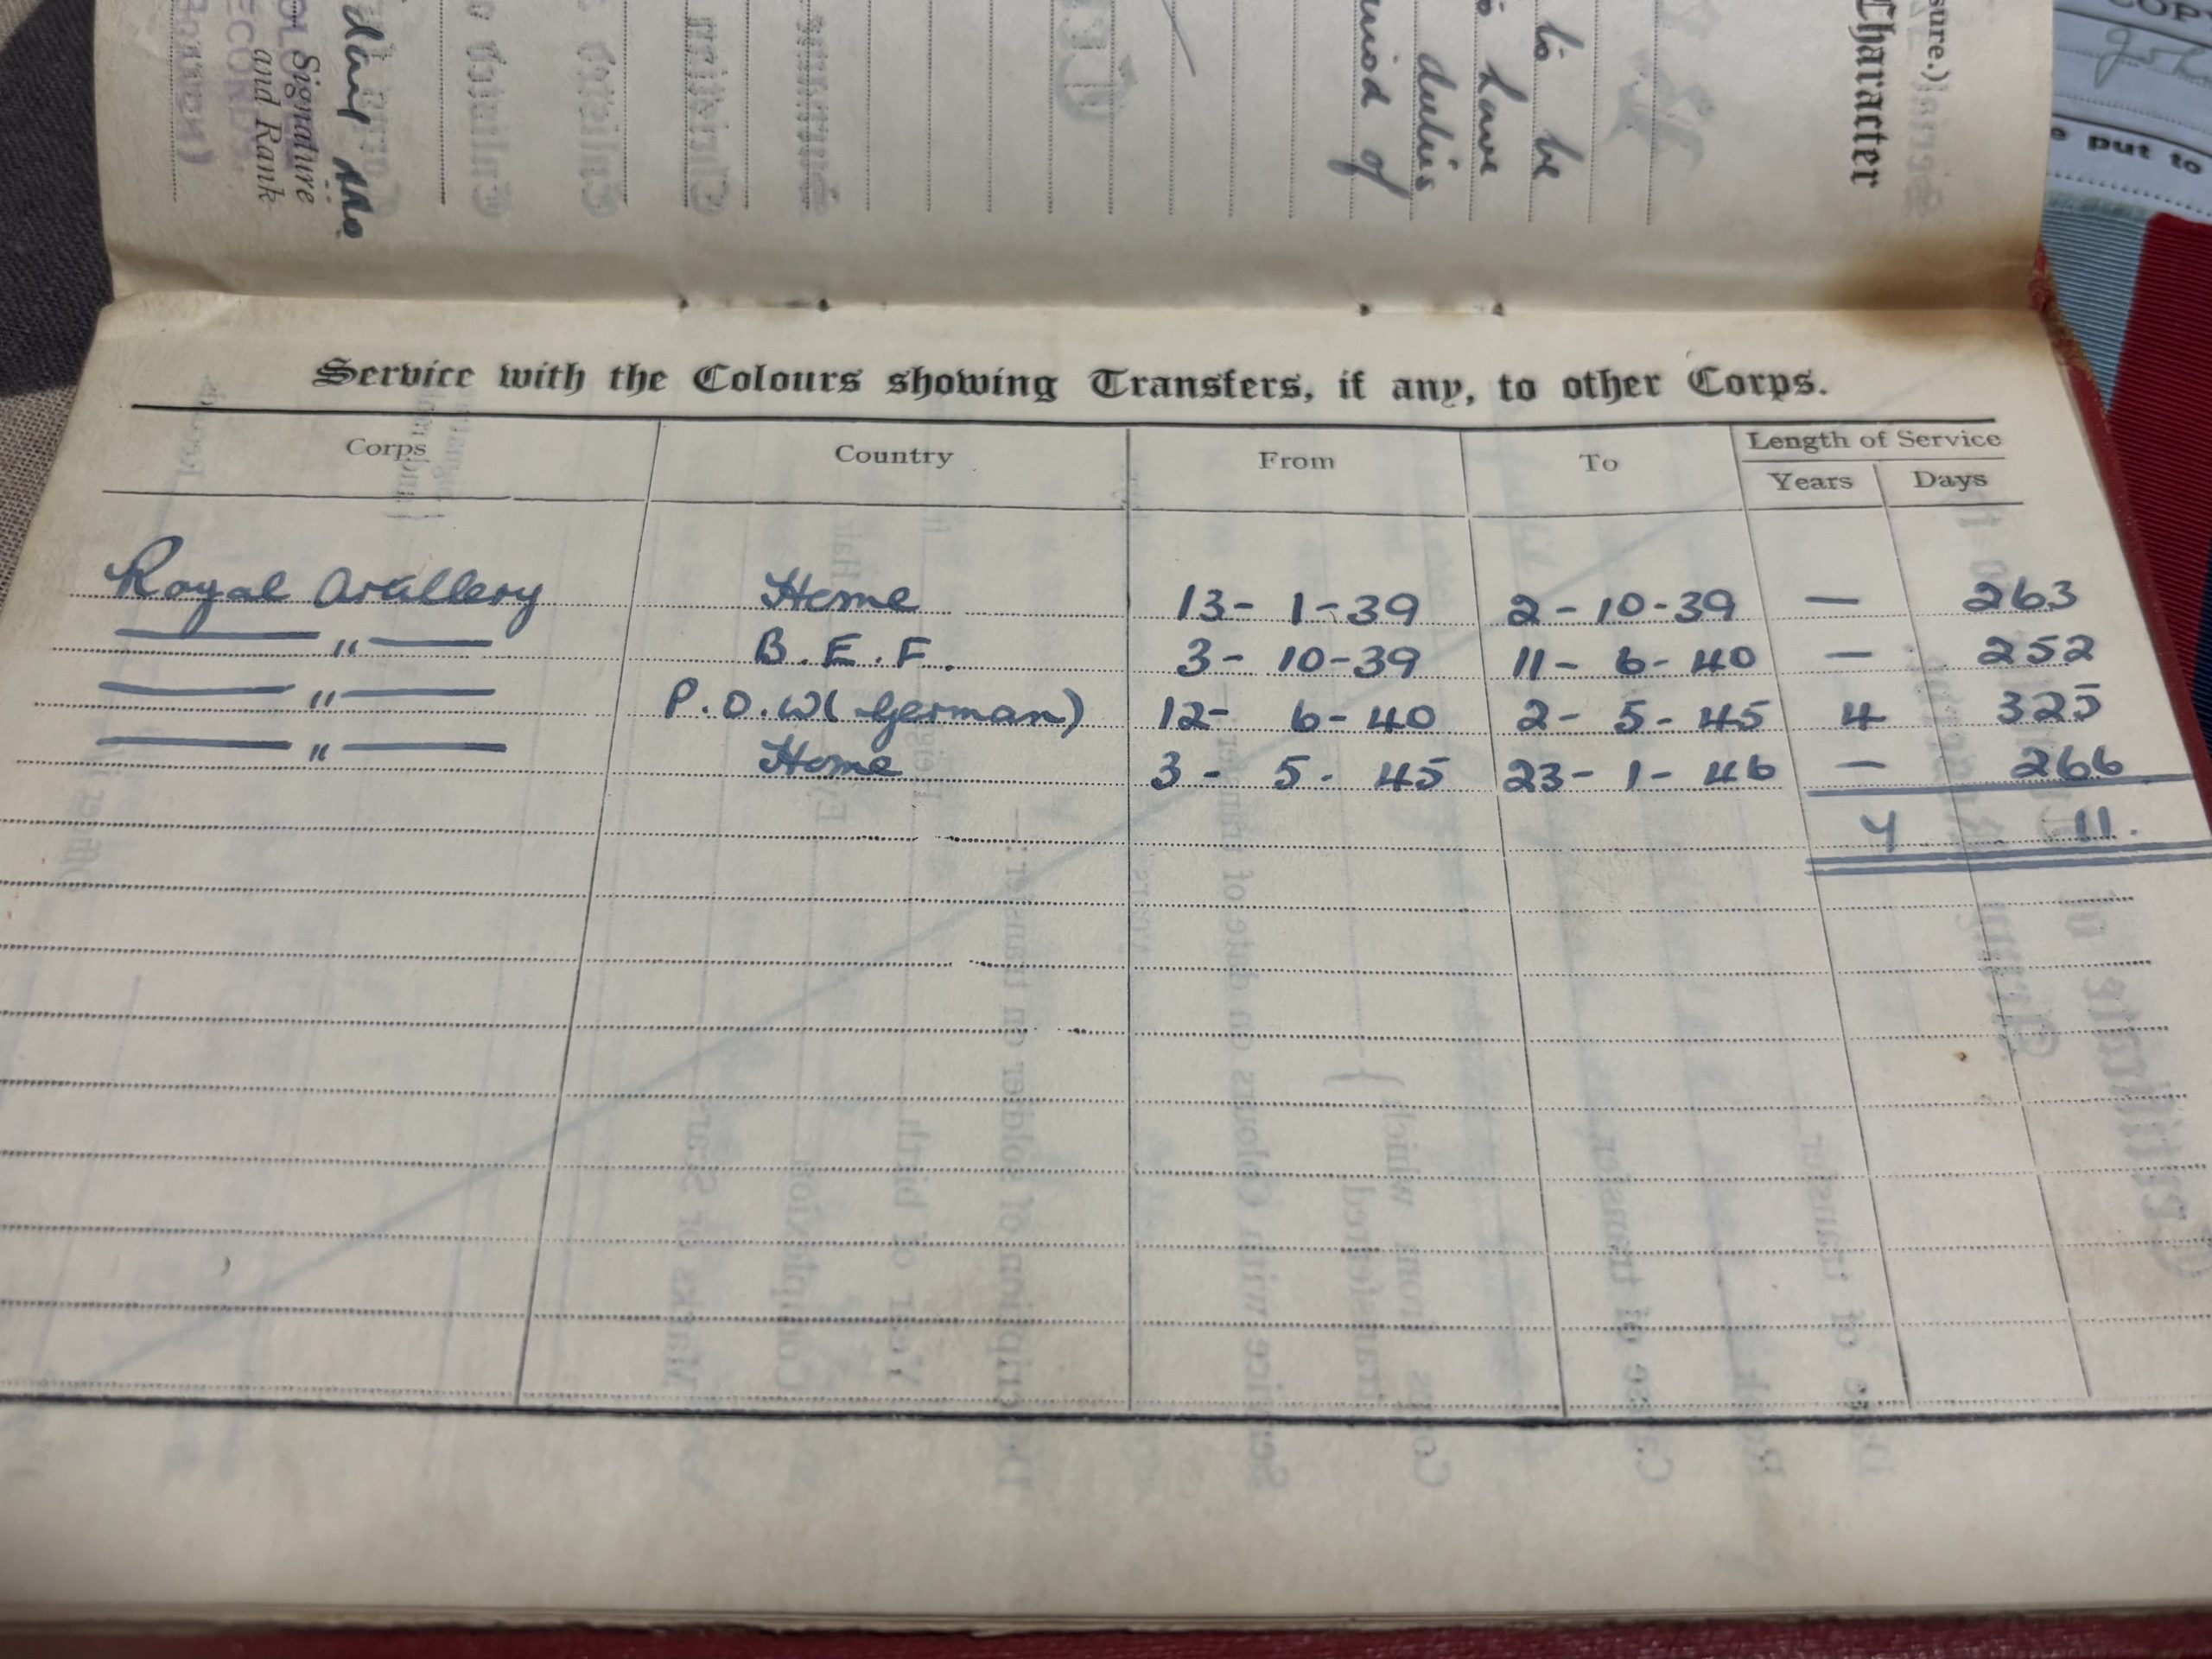 sure.)
Character
to be
to have
duties
period of
Signature
and Rank
COPY
put to
Service with the Colours showing Transfers, if any, to other Corps.
Corps Country From To Length of Service
Years Days
Royal Artillery Home 13-1-39 2-10-39 — 263
— " — B.E.F. 3-10-39 11-6-40 — 252
— " — P.O.W (German) 12-6-40 2-5-45 4 325
— " — Home 3-5-45 23-1-46 — 266
7 11.